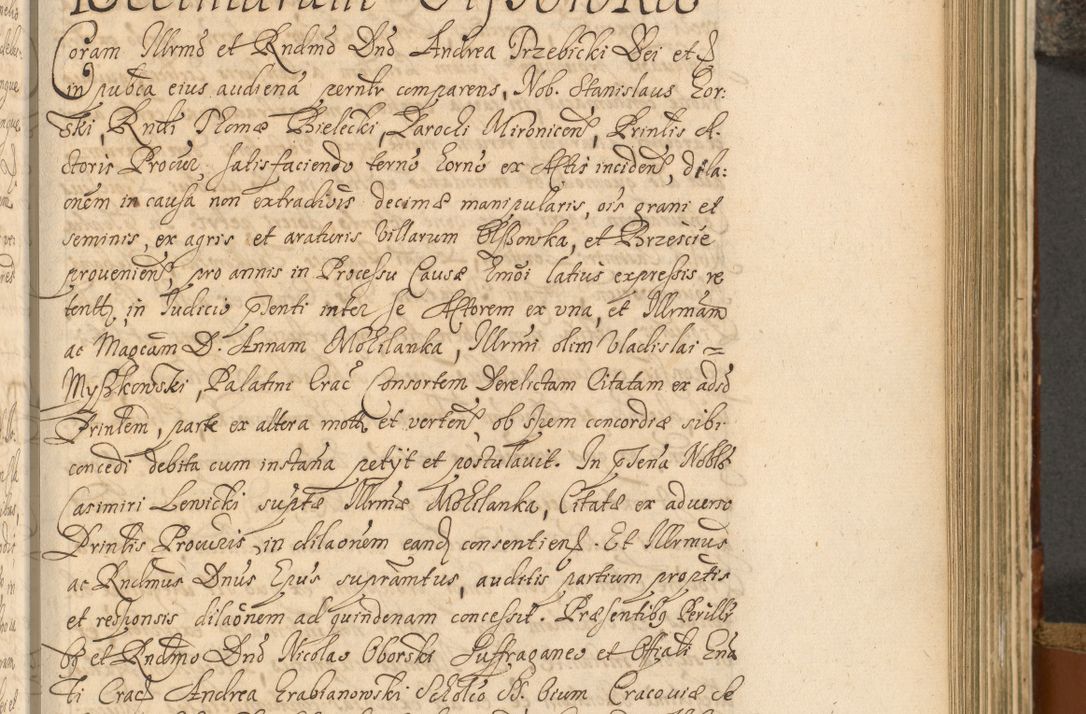 Decimarum Olssowska
Coram Illrmo et Rndmo Dno Andrea Trzebicki Dei et
in pubca eius audiena perntr comparens, Nob. Stanislaus Gor:
ski, Rndi Thomæ Bielecki, Parochi Mironicen, Prinlis A-
ctoris Procur, satisfaciendo termo horno ex Actis inciden, dila:
onem in causa non extradiois decimæ manipularis, ois grani et
seminis, ex agris et araturis villarum Olssowska, et Brzescie
provenien, pro annis in Processu Causæ hmoi latius expressis re
tent, in Judicio psenti inter se Actorem ex una, et Illrmam
ac Magcam D. Annam Mohilanka, Illrmi olim Vladislai =
Myszkowski, Palatini Crac Consortem Derelictam Citatam ex adso
Prinlem, parte ex altera mott et verten ob spem concordiæ sibi
concedi debita cum instana petyt et postulavit. In psena Noblo
Casimiri Lewicki suptæ Illrmæ Mohilanka, Citatæ ex adverso
Prinlis Procuris, in dilaonem eand consentien. Et Illrmus
ac Rndmus Dnus Epus supramtus, auditis partium proptis
et responsis dilaonem ad quindenam concessit. Præsentibq Perillr
bq et Rndmo Dno Nicolao Oborski Suffraganeo et Offiali Gna
li Crac Andrea Grabianowski Scholco SS. Oium Cracoviæ Se